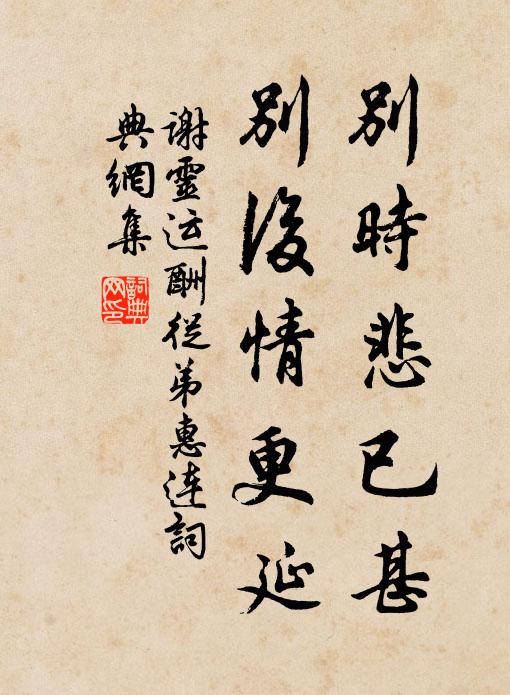 別時悲已甚
別後情更延
谢靈运酬從弟惠连詞
典網集
詞典
网印